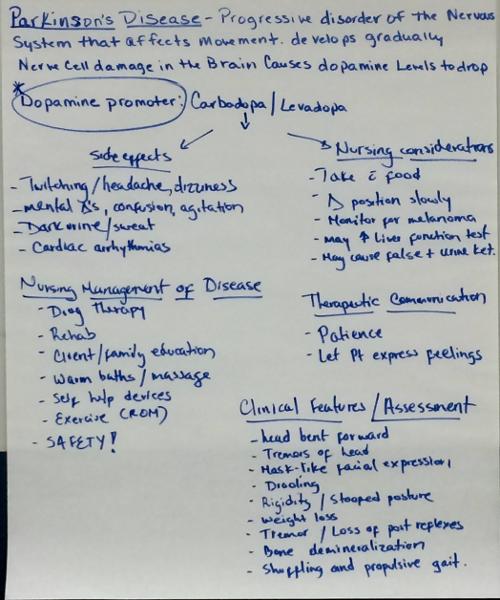 Parkinson's Disease - Progressive disorder of the Nervous
System that affects movement. develops gradually
Nerve Cell damage in the Brain Causes dopamine Levels to drop
* Dopamine promoter: Carbodopa / Levadopa
Side effects
- Twitching/headache, dizziness
- mental Δs, confusion, agitation
- Dark urine/sweat
- Cardiac arrhythmias
Nursing considerations
- Take c̄ food
Δ position slowly
- Monitor for melanoma
- may ↑ Liver function test
- May cause false + urine ket.
Nursing Management of Disease
- Drug therapy
- Rehab
- Client/family education
- Warm baths/massage
- Self help devices
- Exercise (ROM)
- SAFETY!
Therapeutic Communication
- Patience
- Let Pt express feelings
Clinical Features / Assessment
- head bent forward
- Tremors of head
- Mask-like facial expression
- Drooling
- Rigidity / Stooped posture
- Weight loss
- Tremor / Loss of post reflexes
- Bone demineralization
- Shuffling and propulsive gait.